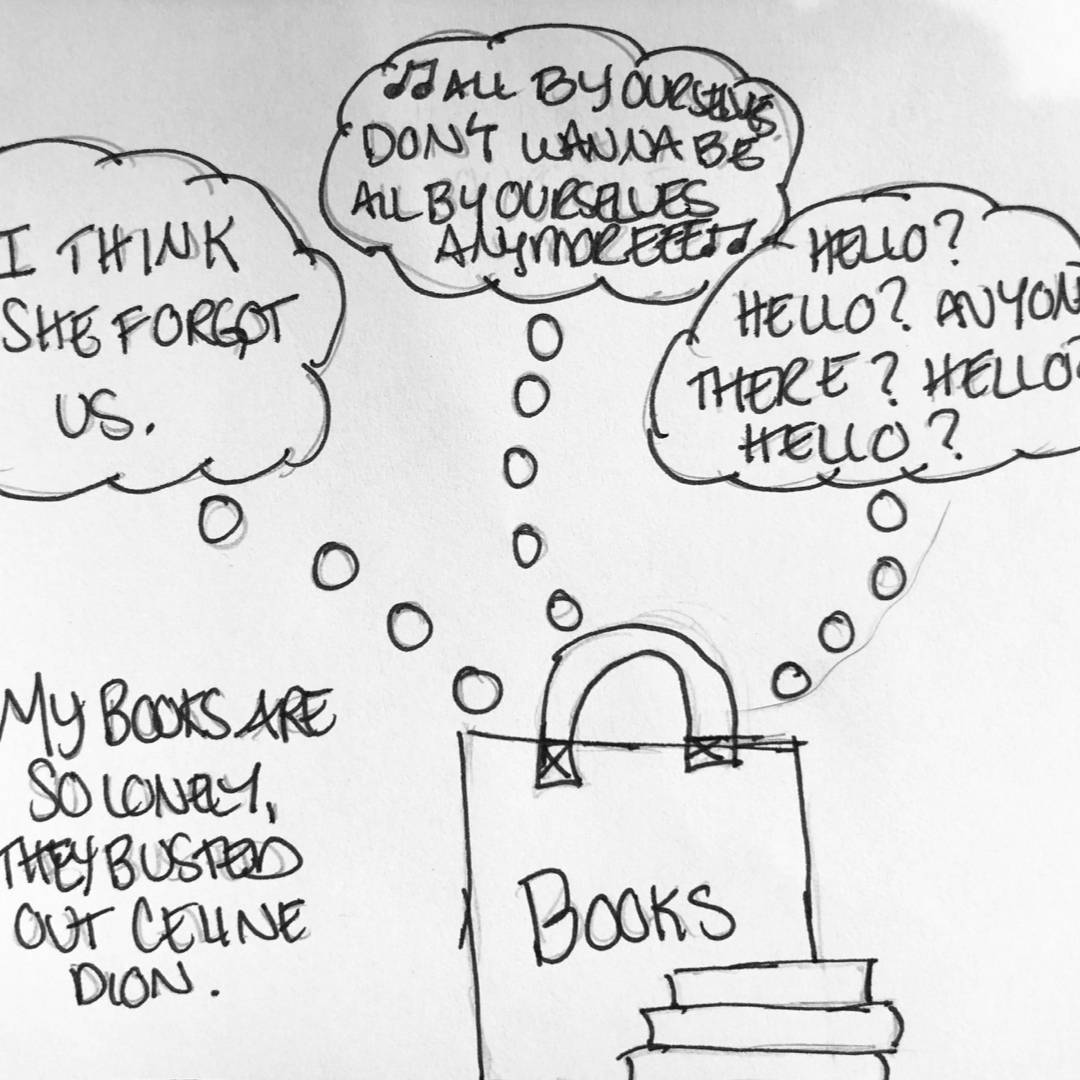 I THINK
SHE FORGOT
US.
♫ ALL BY OURSELVES
DON'T WANNA BE
ALL BY OURSELVES
ANYMOREEEE ♫
HELLO?
HELLO? ANYON
THERE? HELLO?
HELLO?
MY BOOKS ARE
SO LONELY,
THEY BUSTED
OUT CELINE
DION.
BOOKS